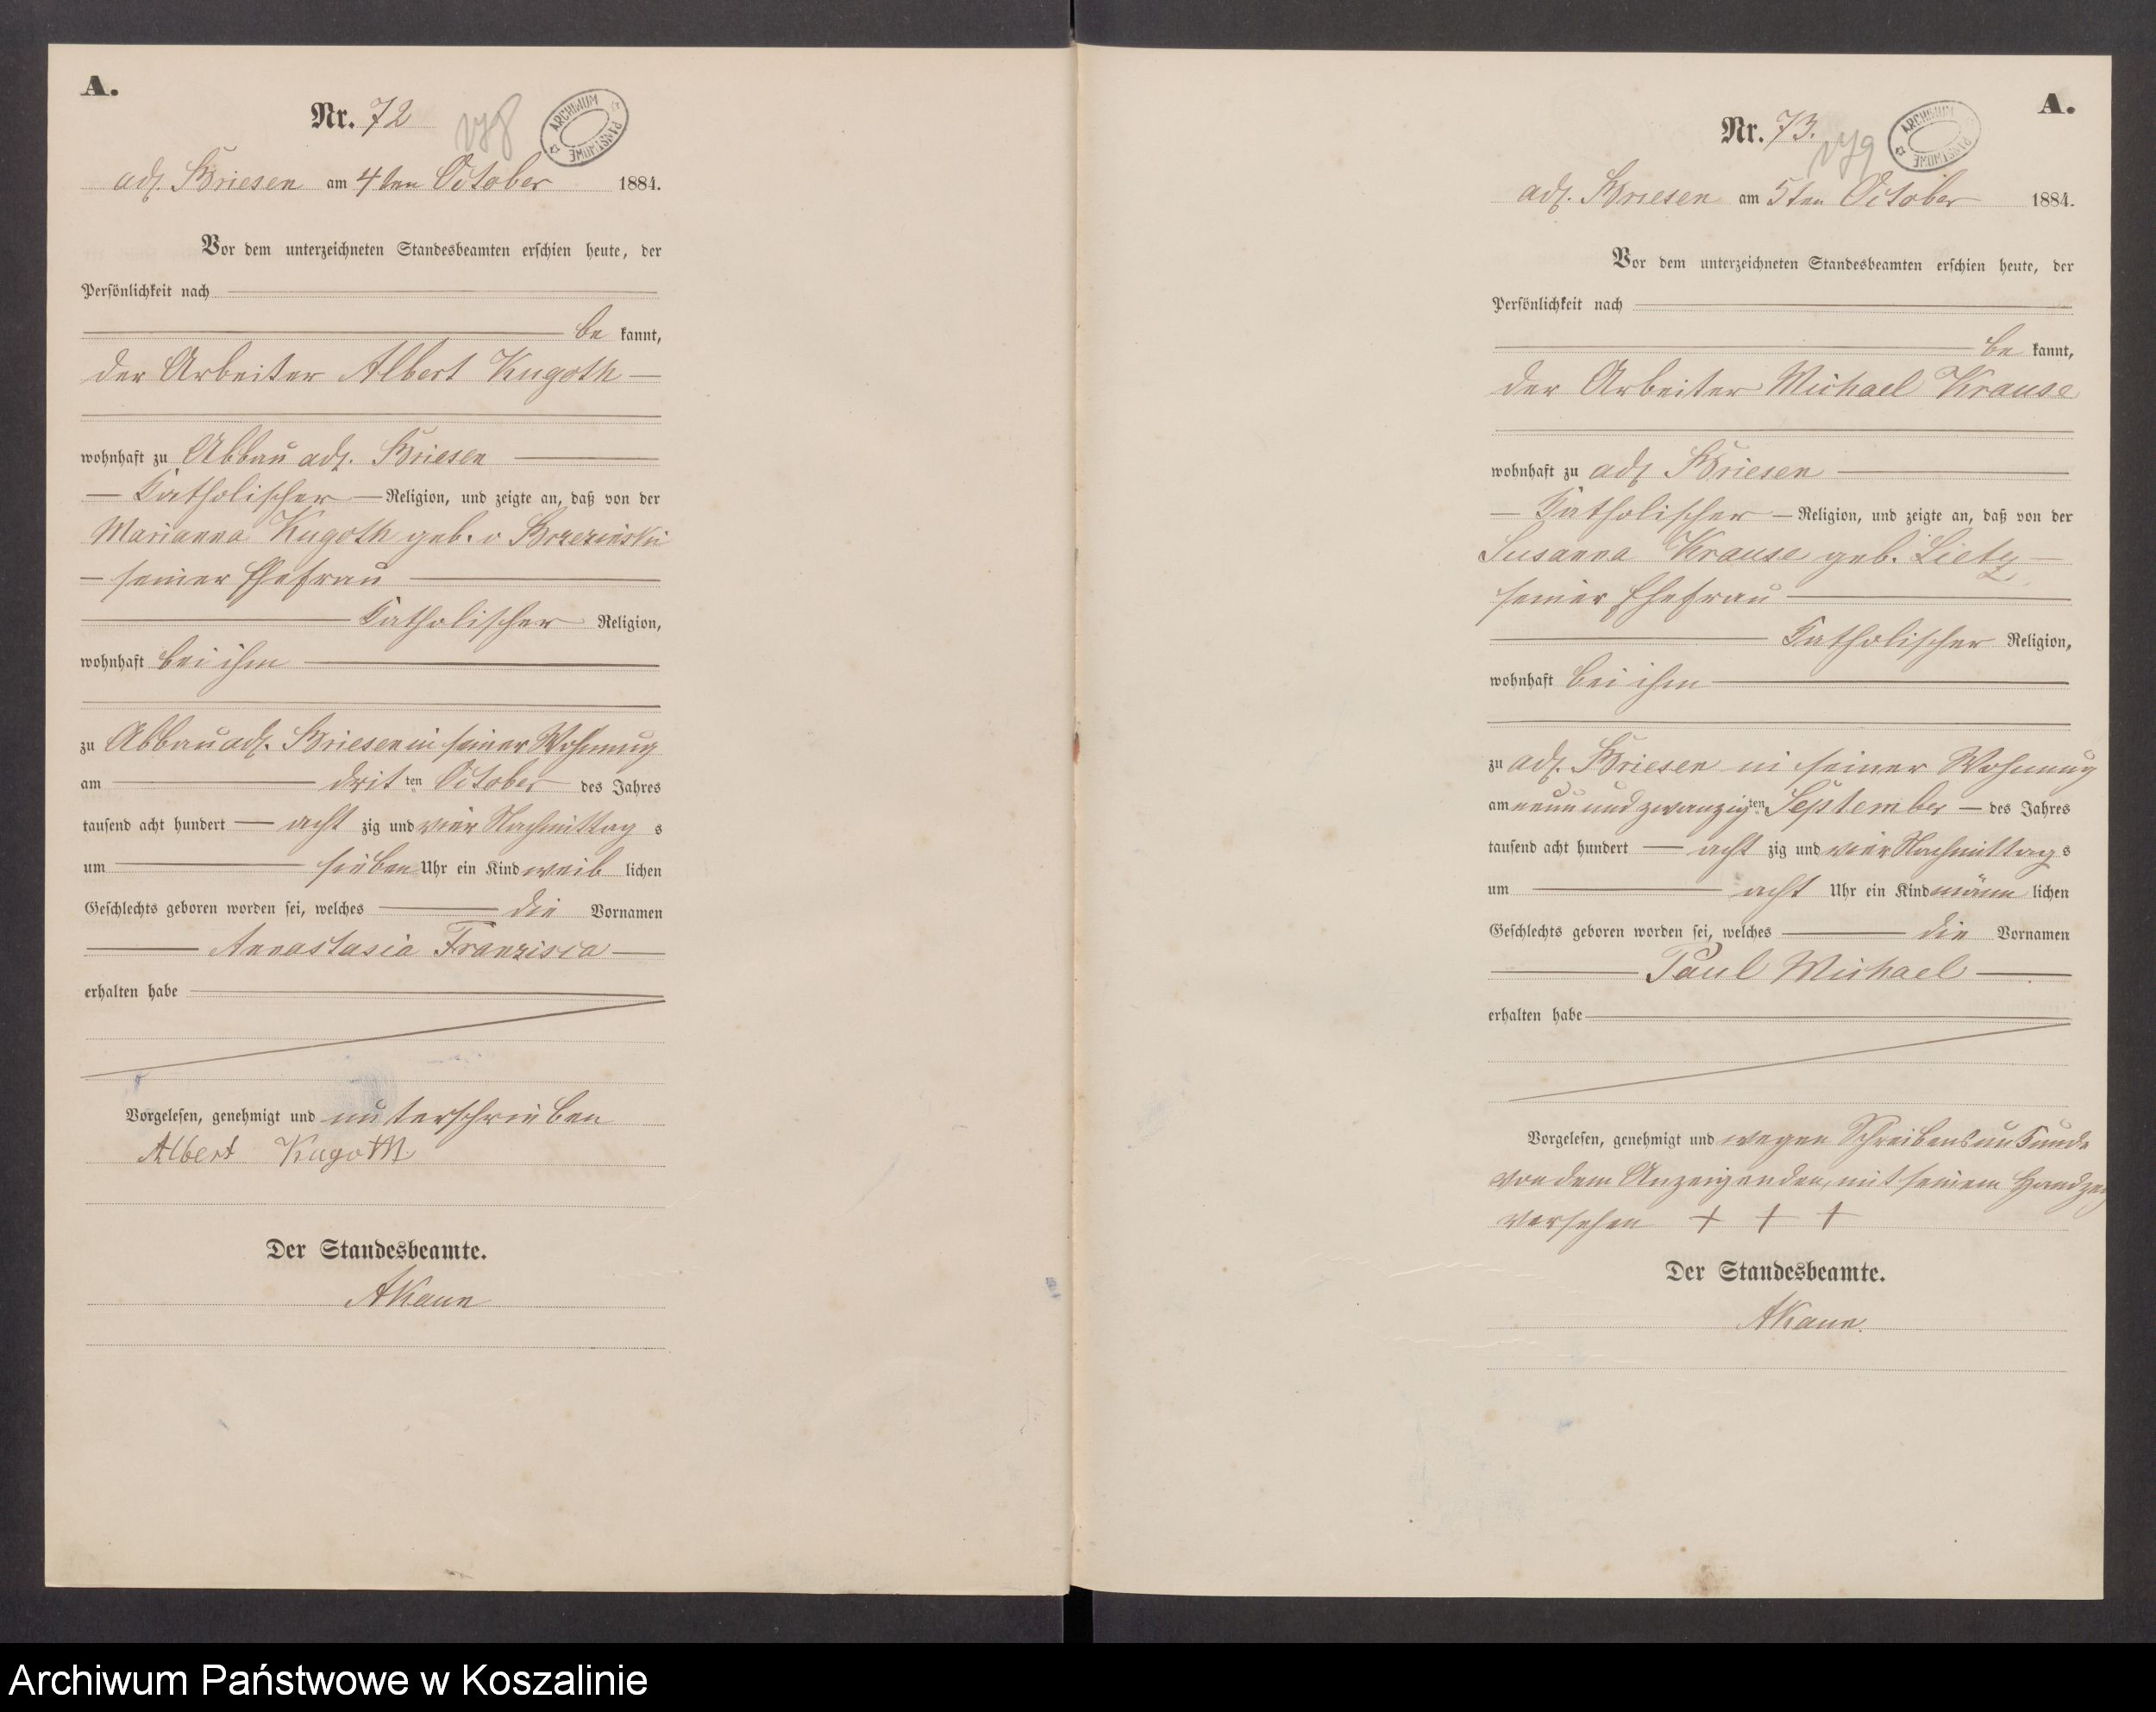 A.
Nr. 72
178
ARCHIWUM PAŃSTWOWE
adl. Briesen am 4ten October 1884.
Vor dem unterzeichneten Standesbeamten erschien heute, der
Persönlichkeit nach
be kannt,
der Arbeiter Albert Kugoth
wohnhaft zu Abbau adl. Briesen
Katholischer Religion, und zeigte an, daß von der
Marianna Kugoth geb. v Brzezinski
seiner Ehefrau
Katholischer Religion,
wohnhaft bei ihm
zu Abbau adl. Briesen in seiner Wohnung
am dritten October des Jahres
tausend acht hundert acht zig und vier Nachmittag s
um sieben Uhr ein Kind weib lichen
Geschlechts geboren worden sei, welches die Vornamen
Annastasia Franzisca
erhalten habe
Vorgelesen, genehmigt und unterschrieben
Albert Kugoth
Der Standesbeamte.
AKaun
A.
Nr. 73.
179
ARCHIWUM PAŃSTWOWE
adl. Briesen am 5ten October 1884.
Vor dem unterzeichneten Standesbeamten erschien heute, der
Persönlichkeit nach
be kannt,
der Arbeiter Michael Krause
wohnhaft zu adl Briesen
Katholischer Religion, und zeigte an, daß von der
Susanna Krause geb. Lietz
seiner Ehefrau
Katholischer Religion,
wohnhaft bei ihm
zu adl. Briesen in seiner Wohnung
am neun und zwanzigten September des Jahres
tausend acht hundert acht zig und vier Nachmittag s
um acht Uhr ein Kind männ lichen
Geschlechts geboren worden sei, welches die Vornamen
Paul Michael
erhalten habe
Vorgelesen, genehmigt und wegen Schreibensunkunde
von dem Anzeigenden, mit seinem Handzei
versehen + + +
Der Standesbeamte.
AKaun.
Archiwum Państwowe w Koszalinie